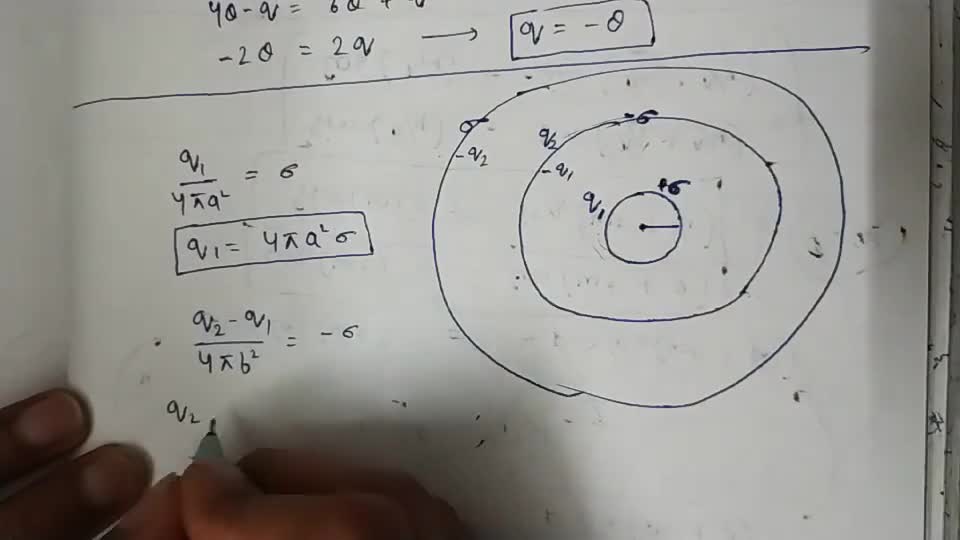 4Q - q = 6Q + q
-2Q = 2q → q = -Q
q₁/4πa² = σ
q₁ = 4πa²σ
q₂ - q₁/4πb² = -σ
q₂
σ
-q₂
q₂
-q₁
-σ
q₁
+σ